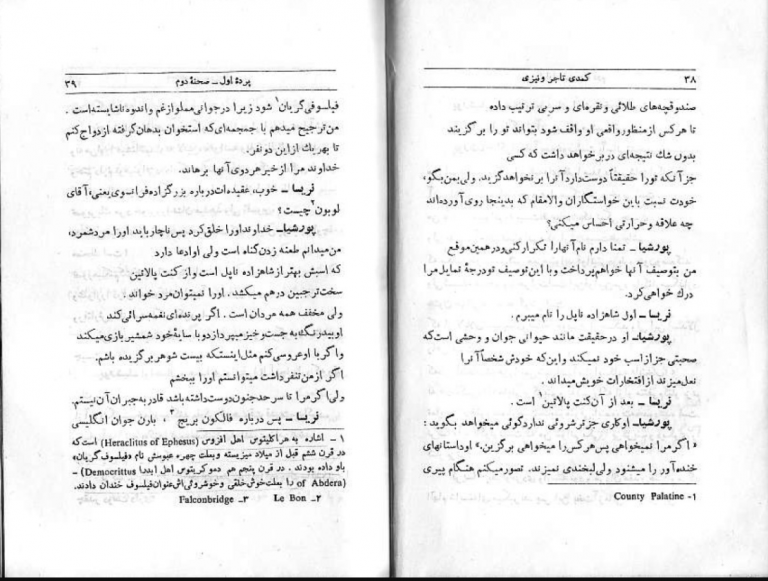 ۳۸ کمدی تاجر ونیزی
صندوقچه‌های طلائی ونقره‌ای و سربی ترتیب داده
تا هرکس ازمنظورواقعی او واقف شود بتواند تو را برگزیند
بدون شك نتیجه‌ای دربرخواهد داشت که کسی
جز آنکه تورا حقیقتاً دوست‌دارد آنرا برنخواهدگزید. ولی‌بمن‌بگو،
خودت نسبت باین خواستگاران والامقام که بدینجا روی آورده‌اند
چه علاقه وحرارتی احساس میکنی؟
پورشیا ـ تمنا دارم نام آنهارا تکرارکنی‌ودرهمین‌موقع
من بتوصیف آنها خواهم‌پرداخت و با این‌توصیف تودرجهٔ تمایل‌مرا
درك خواهی‌کرد.
نریسا ـ اول شاهزاده ناپل را نام میبرم .
پورشیا ـ او درحقیقت مانند حیوانی جوان و وحشی است‌که
صحبتی جزازاسب خود نمیکند واین‌که خودش شخصاً آنرا
نعل‌میزند ازافتخارات خویش‌میداند .
نریسا ـ بعد از آن‌کنت پالاتین۱ است .
پورشیا ـ اوکاری جزترشروئی نداردگوئی میخواهد بگوید :
«اگرمرا نمیخواهی پس‌هرکس‌را میخواهی برگزین.» اوداستانهای
خنده‌آور را میشنود ولی‌لبخندی نمیزند. تصورمیکنم هنگام پیری
۱- County Palatine
پردهٔ اول ـ صحنهٔ دوم ۳۹
فیلسوفی‌گریان۱ شود زیرا درجوانی‌مملوازغم واندوه‌ناشایسته‌است .
من‌ترجیح میدهم با جمجمه‌ای‌که استخوان بدهان‌گرفته ازدواج‌کنم
تا بهریك ازاین دونفر.
خداوند مرا ازخیر هردوی‌آنها برهاند.
نریسا ـ خوب، عقیده‌ات‌درباره بزرگزاده‌فرانسوی‌یعنی، آقای
لوبون۲ چیست؟
پورشیا ـ خداونداورا خلق‌کرد پس‌ناچارباید اورا مردشمرد،
من‌میدانم طعنه زدن‌گناه است ولی اوادعا دارد
که اسبش بهتر ازشاهزاده ناپل است وازکنت پالاتین
سخت‌ترجبین درهم میکشد . اورا نمیتوان‌مرد خواند .
ولی مخفف همه مردان است . اگر پرنده‌ای‌نغمه‌سرائی‌کند
اوبیدرنگ‌به‌جست‌وخیزمیپردازدوبا سایهٔ‌خود شمشیر بازی‌میکند
واگربا اوعروسی‌کنم مثل‌اینستکه بیست شوهر برگزیده باشم.
اگر ازمن‌تنفرداشت میتوانستم اورا ببخشم
ولی‌اگرمرا تا سرحدجنون‌دوست‌داشته‌باشد قادربه‌جبران‌آن‌نیستم.
نریسا ـ پس درباره فالکون بریج۳ ، بارن جوان انگلیسی
۱ ـ اشاره به هراکلیتوس اهل افزوس (Heraclitus of Ephesus) است‌که
در قرن ششم قبل از میلاد میزیسته وبعلت چهره عبوسش نام «فیلسوف‌گریان»
باو داده بودند . در قرن پنجم هم دموکریتوس اهل ابدرا (Democrittus -
of Abdera) را بعلت‌خوش‌خلقی وخوشروئی‌اش‌عنوان‌فیلسوف خندان دادند.
۲ـ Le Bon ۳ـ Falconbridge